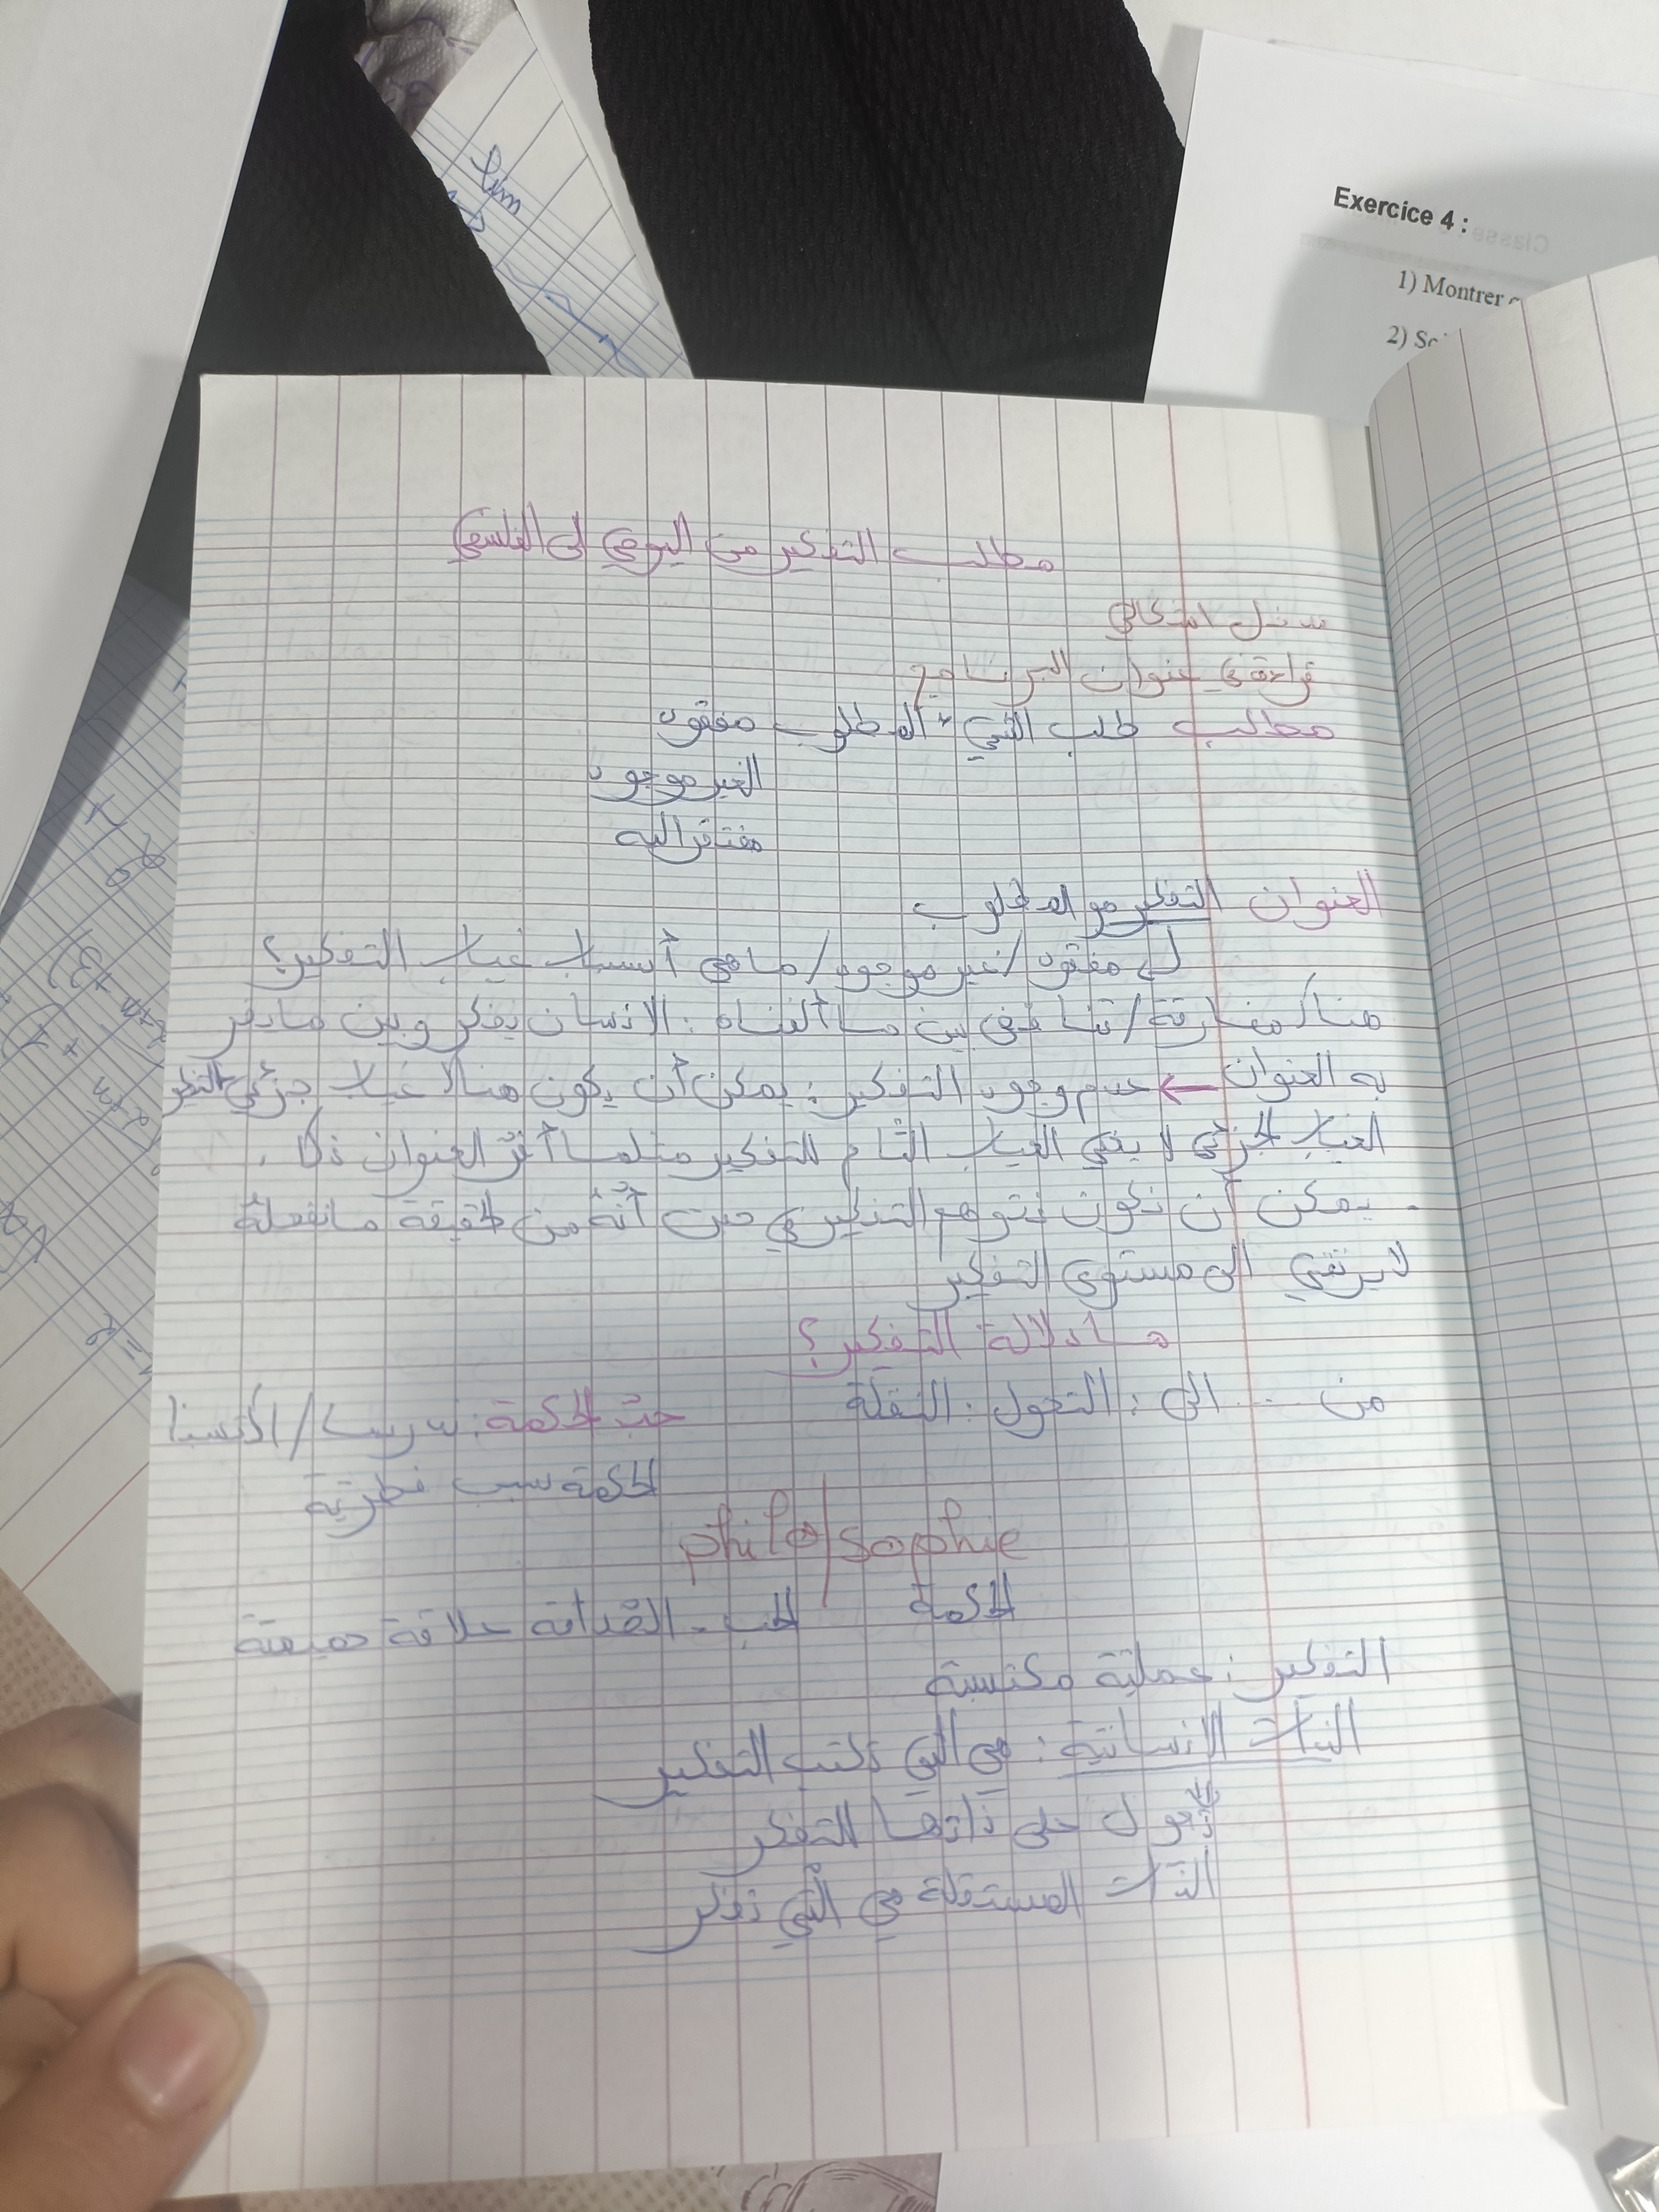 lim
Exercice 4 :
1) Montrer
2)
مطلب التفكير من اليومي إلى الفلسفي
مدخل اشكالي
قراءة في عنوان البرنامج
مطالب طلب الشيء المطلوب مفقود
الغير موجود
مفتقر اليه
العنوان التفكير هو المطلوب
مفقود / غير موجود / ما هي أسباب غياب التفكير؟
هناك مفارقة / تناقض بين ما ألفناه : الانسان يفكر و بين ما
به العنوان ← عدم وجود التفكير : يمكن أن يكون هنالك غياب جزئي للتفكير
الغياب الجزئي لا يعني الغياب التام للتفكير مثلما أقر العنوان ذلك .
- يمكن أن نكون نتوهم التفكير في حين أنه من الحقيقة ما نفعله
لا يرتقي الى مستوى التفكير
ما دلالة التفكير؟
من ... الى : التحول : النقلة
حب الحكمة : تدريبا / اكتسبنا
الحكمة فطرية
philo/sophie
الحكمة
الحب - الصداقة علاقة حميمة
التفكير : عملية مكتسبة
الذات الانسانية : هي التي تكتسب التفكير
تعول على ذاتها للتفكير
الذات المستقلة هي التي تفكر